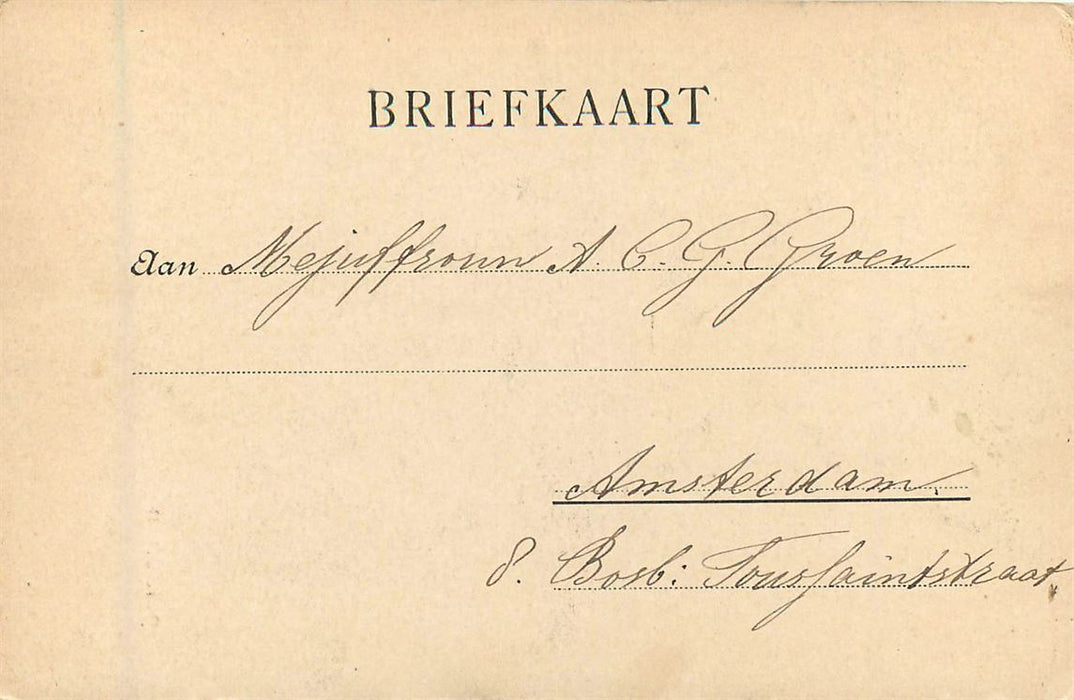 BRIEFKAART
Aan Mejuffrouw A. C. G. Groen
Amsterdam.
8. Bosb: Toussaintstraat